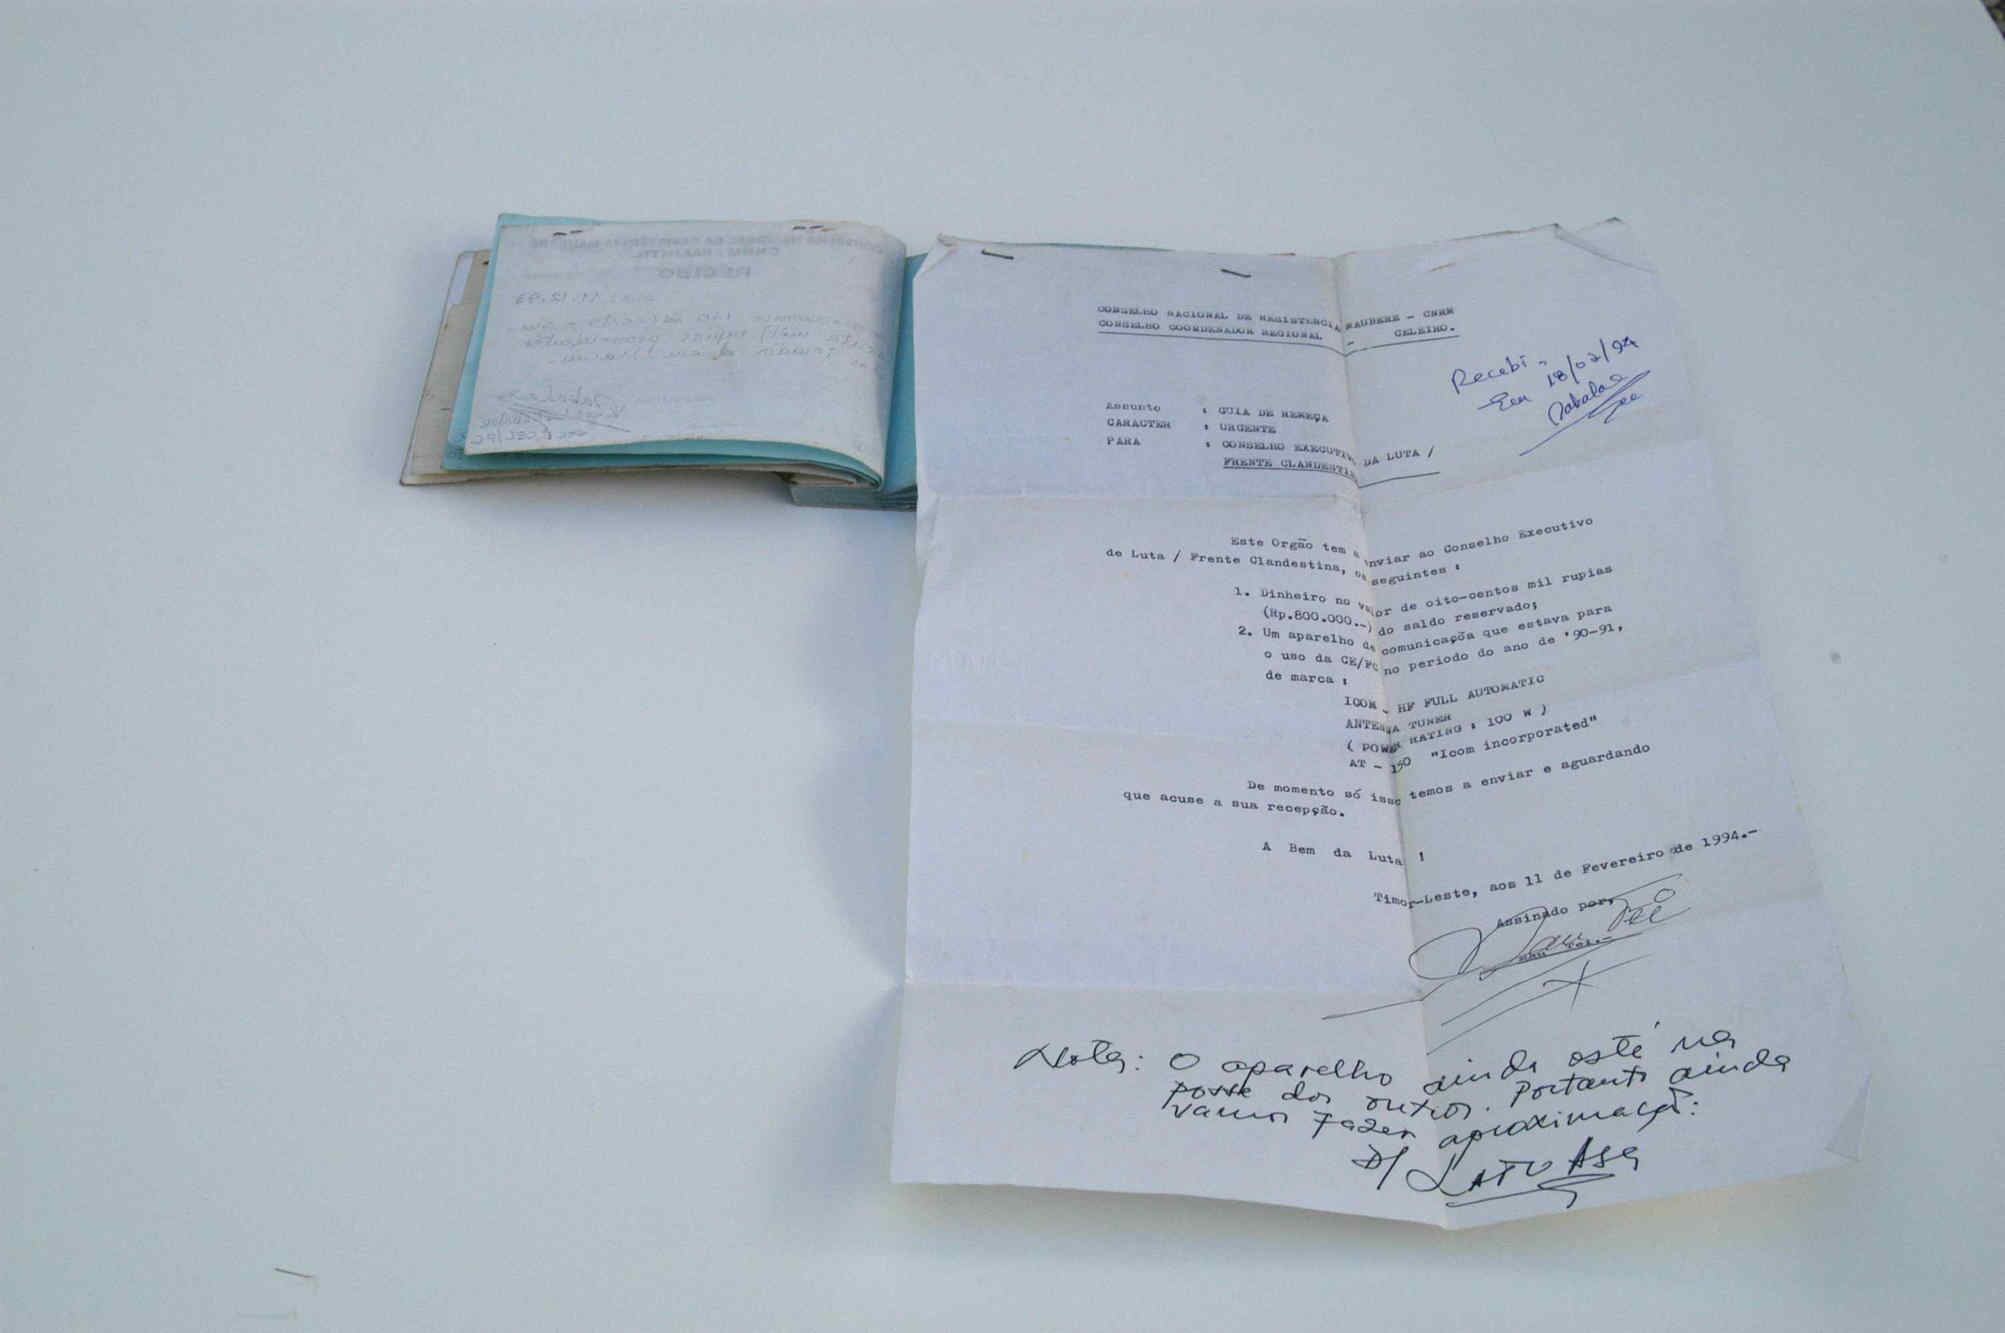 CONSELHO NACIONAL DE RESISTENCIA MAUBERE - CNRM
CONSELHO COORDENADOR REGIONAL - CELEIRO.
Recebi
Em 18/02/94
Assunto : GUIA DE REMEÇA
CARACTER : URGENTE
PARA : CONSELHO EXECUTIVO DA LUTA /
FRENTE CLANDESTINA
Este Orgão tem a enviar ao Conselho Executivo
de Luta / Frente Clandestina, os seguintes :
1. Dinheiro no valor de oito-centos mil rupias
(Rp.800.000.-) do saldo reservado;
2. Um aparelho de comunicação que estava para
o uso da CE/FC no periodo do ano de '90-91,
de marca :
ICOM - HF FULL AUTOMATIC
ANTENNA TUNER
( POWER RATING : 100 W )
AT - 150 "Icom incorporated"
De momento só isso temos a enviar e aguardando
que acuse a sua recepção.
A Bem da Luta !
Timor-Leste, aos 11 de Fevereiro de 1994.-
Assinado por,
Nota: O aparelho ainda está na
posse dos outros. Portanto ainda
vamos fazer aproximação:
RECIBO
11.12.93